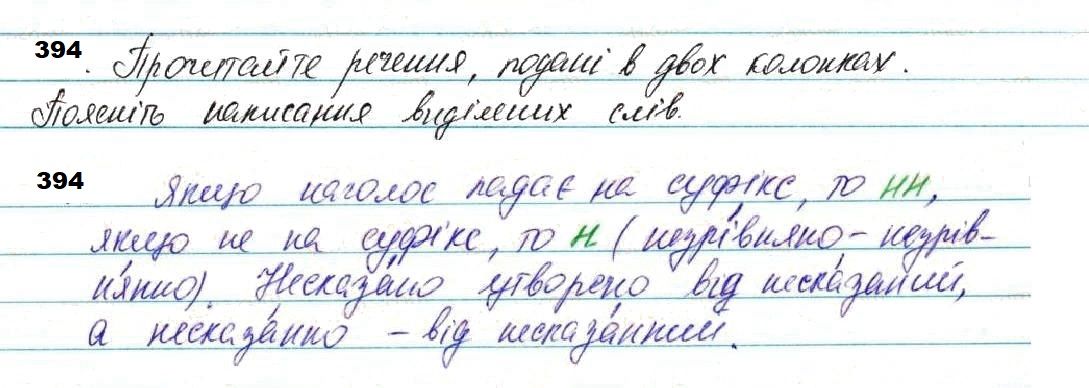 394. Прочитайте речення, подані в двох колонках.
Поясніть написання виділених слів.
394 Якщо наголос падає на суфікс, то нн,
якщо не на суфікс, то н (незрі́вняно – незрів-
ня́нно). Несказа́но утворено від неска́заний,
а несказа́нно – від несказа́нний.